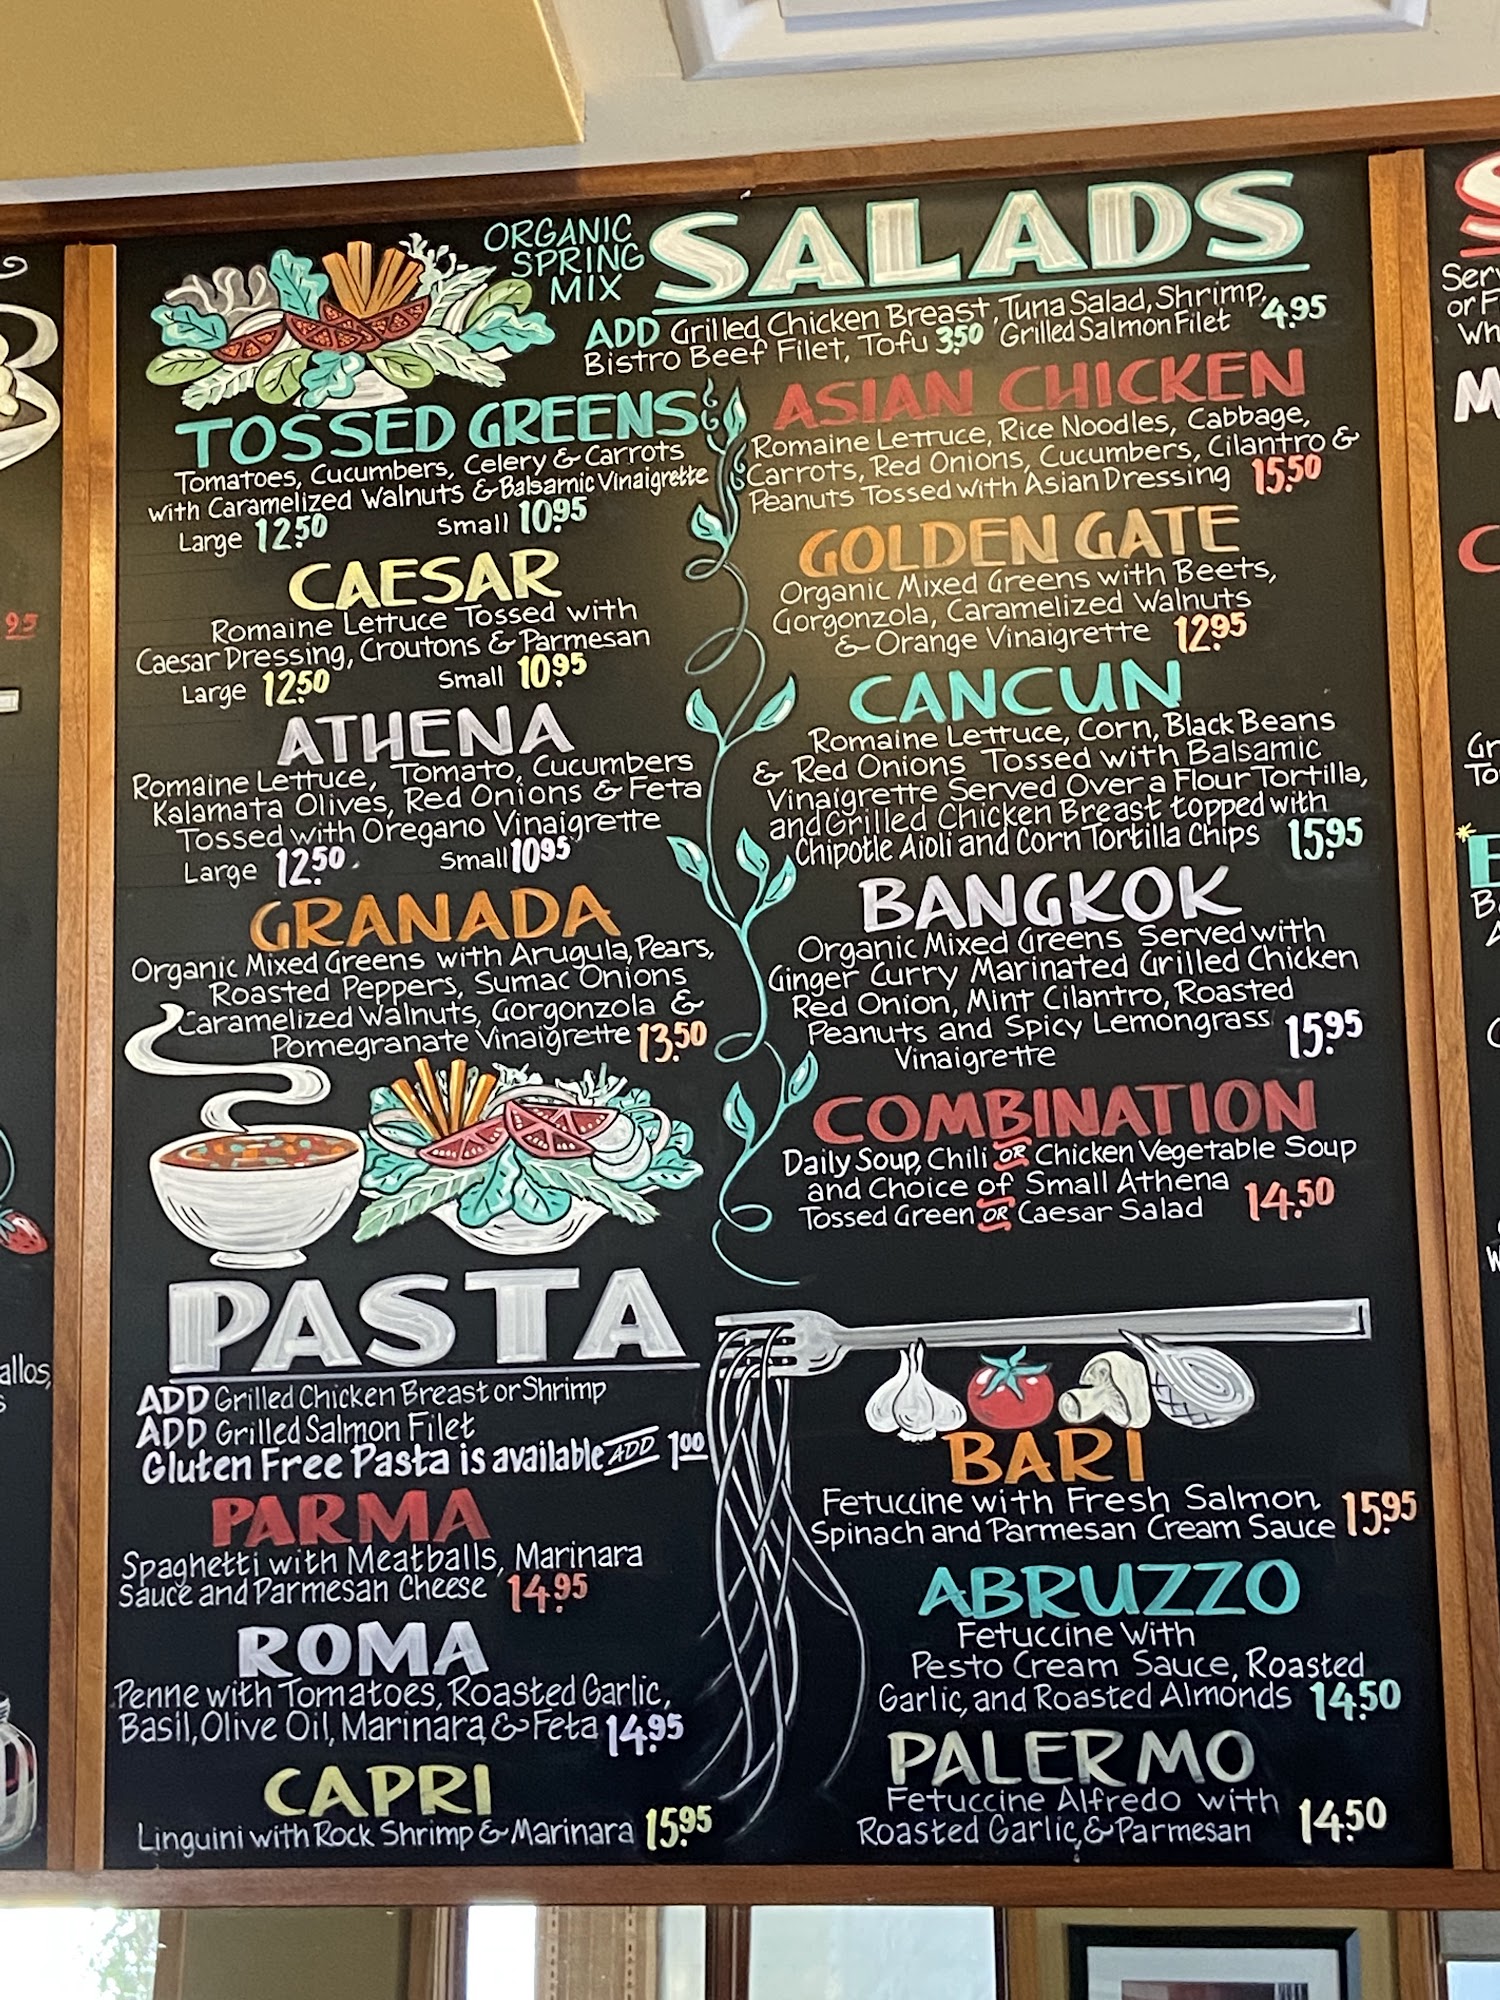 ORGANIC
SPRING
MIX
SALADS
ADD Grilled Chicken Breast, Tuna Salad, Shrimp,
Bistro Beef Filet, Tofu 3.50 Grilled Salmon Filet 4.95
TOSSED GREENS
Tomatoes, Cucumbers, Celery & Carrots
with Caramelized Walnuts & Balsamic Vinaigrette
Large 12.50 Small 10.95
CAESAR
Romaine Lettuce Tossed with
Caesar Dressing, Croutons & Parmesan
Large 12.50 Small 10.95
ATHENA
Romaine Lettuce, Tomato, Cucumbers
Kalamata Olives, Red Onions & Feta
Tossed with Oregano Vinaigrette
Large 12.50 Small 10.95
GRANADA
Organic Mixed Greens with Arugula, Pears,
Roasted Peppers, Sumac Onions
Caramelized Walnuts, Gorgonzola &
Pomegranate Vinaigrette 13.50
ASIAN CHICKEN
Romaine Lettuce, Rice Noodles, Cabbage,
Carrots, Red Onions, Cucumbers, Cilantro &
Peanuts Tossed with Asian Dressing 15.50
GOLDEN GATE
Organic Mixed Greens with Beets,
Gorgonzola, Caramelized Walnuts
& Orange Vinaigrette 12.95
CANCUN
Romaine Lettuce, Corn, Black Beans
& Red Onions Tossed with Balsamic
Vinaigrette Served Over a Flour Tortilla,
and Grilled Chicken Breast topped with
Chipotle Aioli and Corn Tortilla Chips 15.95
BANGKOK
Organic Mixed Greens Served with
Ginger Curry Marinated Grilled Chicken
Red Onion, Mint Cilantro, Roasted
Peanuts and Spicy Lemongrass
Vinaigrette 15.95
COMBINATION
Daily Soup, Chili OR Chicken Vegetable Soup
and Choice of Small Athena
Tossed Green OR Caesar Salad 14.50
PASTA
ADD Grilled Chicken Breast or Shrimp
ADD Grilled Salmon Filet
Gluten Free Pasta is available ADD 1.00
PARMA
Spaghetti with Meatballs, Marinara
Sauce and Parmesan Cheese 14.95
ROMA
Penne with Tomatoes, Roasted Garlic,
Basil, Olive Oil, Marinara, & Feta 14.95
CAPRI
Linguini with Rock Shrimp & Marinara 15.95
BARI
Fetuccine with Fresh Salmon
Spinach and Parmesan Cream Sauce 15.95
ABRUZZO
Fetuccine with
Pesto Cream Sauce, Roasted
Garlic, and Roasted Almonds 14.50
PALERMO
Fetuccine Alfredo with
Roasted Garlic, & Parmesan 14.50
95
allos,
Ser
or F
Wh
M
Gr
To